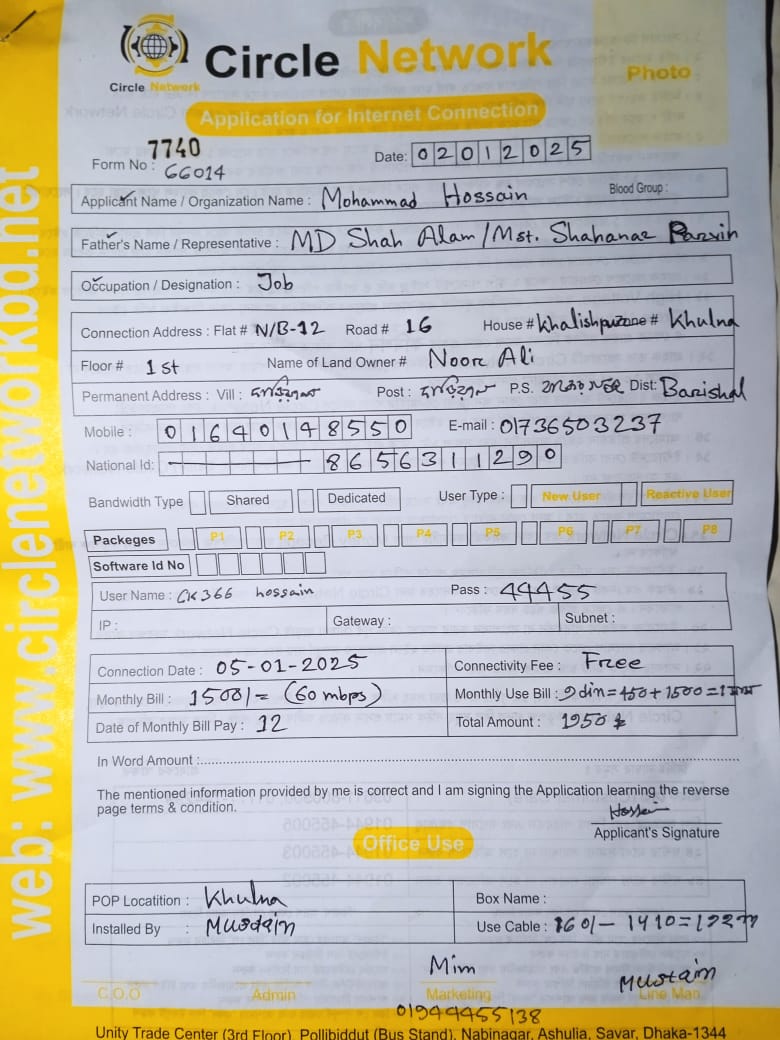 Circle Network
Circle Network
Photo
Application for Internet Connection
7740
Form No : 66014
Date: 02012025
Applicant Name / Organization Name : Mohammad Hossain Blood Group :
Father's Name / Representative : MD Shah Alam / Mst. Shahanaz Parvin
Occupation / Designation : Job
Connection Address : Flat # N/B-12 Road # 16 House # Khalishpur Zone # Khulna
Floor # 1st Name of Land Owner # Noor Ali
Permanent Address : Vill : Post : P.S. Dist: Barishal
Mobile : 01640148550 E-mail : 01736503237
National Id: 8656311290
Bandwidth Type Shared Dedicated User Type : New User Reactive User
Packeges P1 P2 P3 P4 P5 P6 P7 P8
Software Id No
User Name : CK366 hossain Pass : 49455
IP : Gateway : Subnet :
Connection Date : 05-01-2025 Connectivity Fee : Free
Monthly Bill : 1500/= (60 mbps) Monthly Use Bill : 9 din = 450 + 1500 =
Date of Monthly Bill Pay : 12 Total Amount : 1950
In Word Amount :
The mentioned information provided by me is correct and I am signing the Application learning the reverse
page terms & condition.
Hossain
Applicant's Signature
Office Use
POP Locatition : Khulna Box Name :
Installed By : Mustain Use Cable :
Mim Mustain
C.O.O Admin Marketing Line Man
01944455138
Unity Trade Center (3rd Floor), Pollibiddut (Bus Stand), Nabinagar, Ashulia, Savar, Dhaka-1344
web: www.circlenetworkbd.net